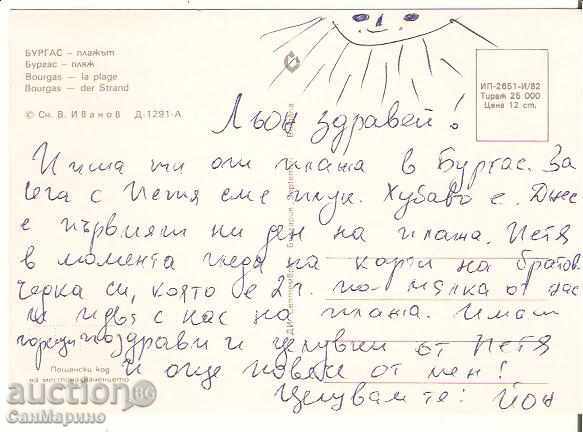 БУРГАС – плажът
Бургас – пляж
Bourgas – la plage
Bourgas – der Strand
© Сн. В. Иванов Д-1291-А
ИП-2651-И/82
Тираж 25 000
Цена 12 ст.
Льон здравей!
Пиша ти от плажа в Бургас. За
сега с Петя сме тук. Хубаво е. Днес
е първият ни ден на плажа. Петя
в момента гледа на карти на братов
черка си, която е 2 г. по-малка от нас
и идва с нас на плажа. Имаш
горещи поздрави и целувки от Петя
И още повече от мен!
Целувам те: Йон
Пощенски код
на местоназначението
АУКЦИОН.BG
СанМарино